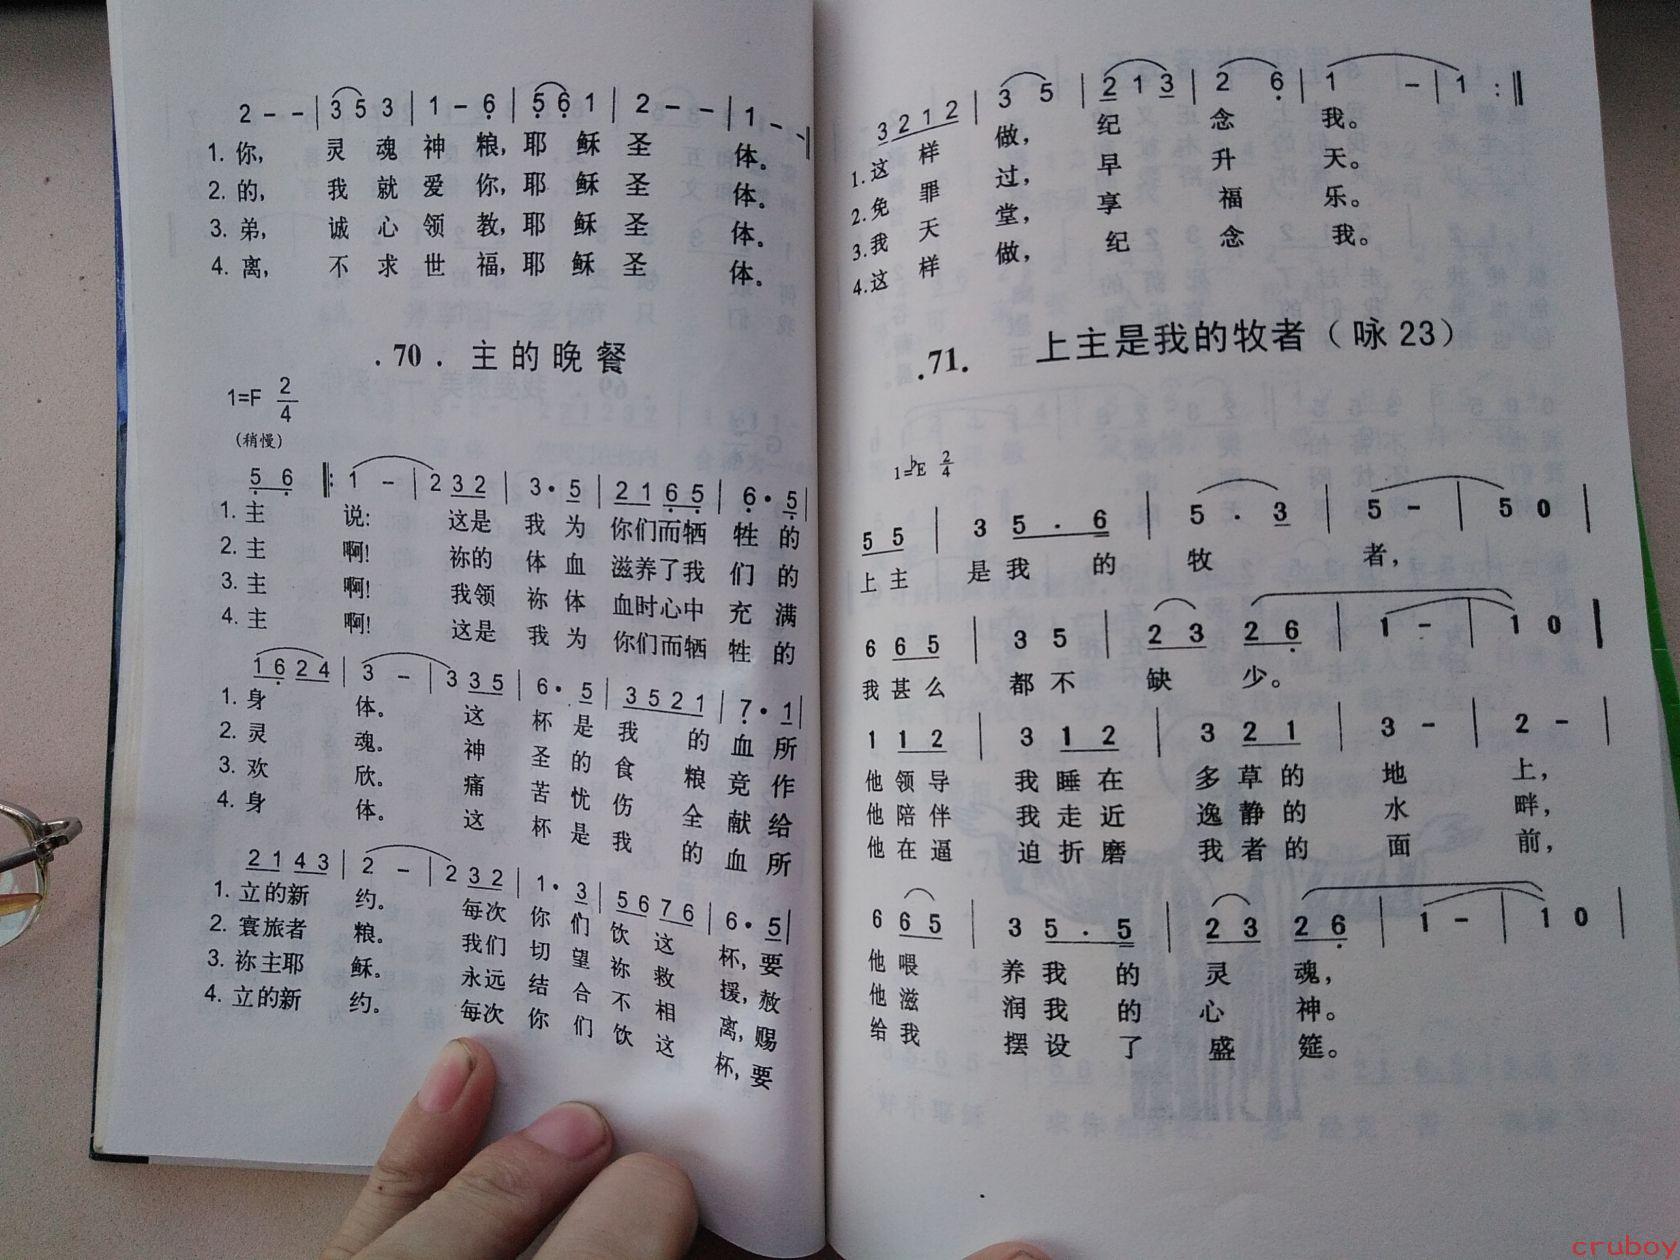 2 - - | 3 5 3 | 1 - 6 | 5 6 1 | 2 - - | 1 - -
1. 你, 灵 魂 神 粮, 耶 稣 圣 体。
2. 的, 我 就 爱 你, 耶 稣 圣 体。
3. 弟, 诚 心 领 教, 耶 稣 圣 体。
4. 离, 不 求 世 福, 耶 稣 圣 体。
. 70 . 主 的 晚 餐
1=F 2/4
(稍慢)
5 6 ‖: 1 - | 2 3 2 | 3 · 5 | 2 1 6 5 | 6 · 5 |
1. 主 说: 这是 我 为 你们而牺 牲 的
2. 主 啊! 祢的 体 血 滋养了我 们 的
3. 主 啊! 我领 祢 体 血时心中 充 满
4. 主 啊! 这是 我 为 你们而牺 牲 的
1 6 2 4 | 3 - | 3 3 5 | 6 · 5 | 3 5 2 1 | 7 · 1 |
1. 身 体。 这 杯 是 我 的 血 所
2. 灵 魂。 神 圣 的 食 粮 竞 作
3. 欢 欣。 痛 苦 忧 伤 全 献 给
4. 身 体。 这 杯 是 我 的 血 所
2 1 4 3 | 2 - | 2 3 2 | 1 · 3 | 5 6 7 6 | 6 · 5 |
1. 立的新 约。 每次 你 们 饮 这 杯, 要
2. 寰旅者 粮。 我们 切 望 祢 救 援, 赦
3. 祢主耶 稣。 永远 结 合 不 相 离, 赐
4. 立的新 约。 每次 你 们 饮 这 杯, 要
3 2 1 2 | 3 5 | 2 1 3 | 2 6 | 1 - | 1 :‖
1. 这 样 做, 纪 念 我。
2. 免 罪 过, 早 升 天。
3. 我 天 堂, 享 福 乐。
4. 这 样 做, 纪 念 我。
. 71. 上主是我的牧者（咏 23）
1=♭E 2/4
5 5 | 3 5 . 6 | 5 . 3 | 5 - | 5 0 |
上 主 是 我 的 牧 者,
6 6 5 | 3 5 | 2 3 2 6 | 1 - | 1 0 |
我 甚 么 都 不 缺 少。
1 1 2 | 3 1 2 | 3 2 1 | 3 - | 2 - |
他 领 导 我 睡 在 多 草 的 地 上,
他 陪 伴 我 走 近 逸 静 的 水 畔,
他 在 逼 迫 折 磨 我 者 的 面 前,
6 6 5 | 3 5 . 5 | 2 3 2 6 | 1 - | 1 0 |
他 喂 养 我 的 灵 魂,
他 滋 润 我 的 心 神。
给 我 摆 设 了 盛 筵。
cruboy